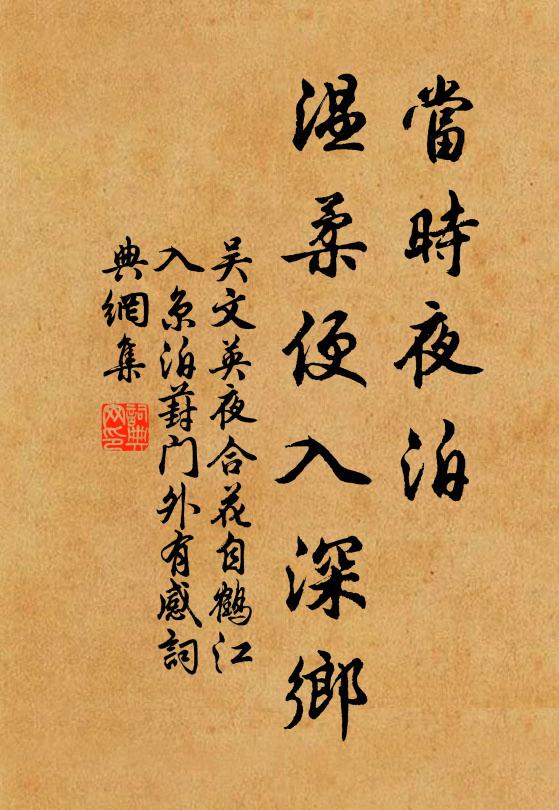 當時夜泊
温柔便入深鄉
吴文英夜合花自鶴江
入京泊葑门外有感詞
典網集
詞典網印